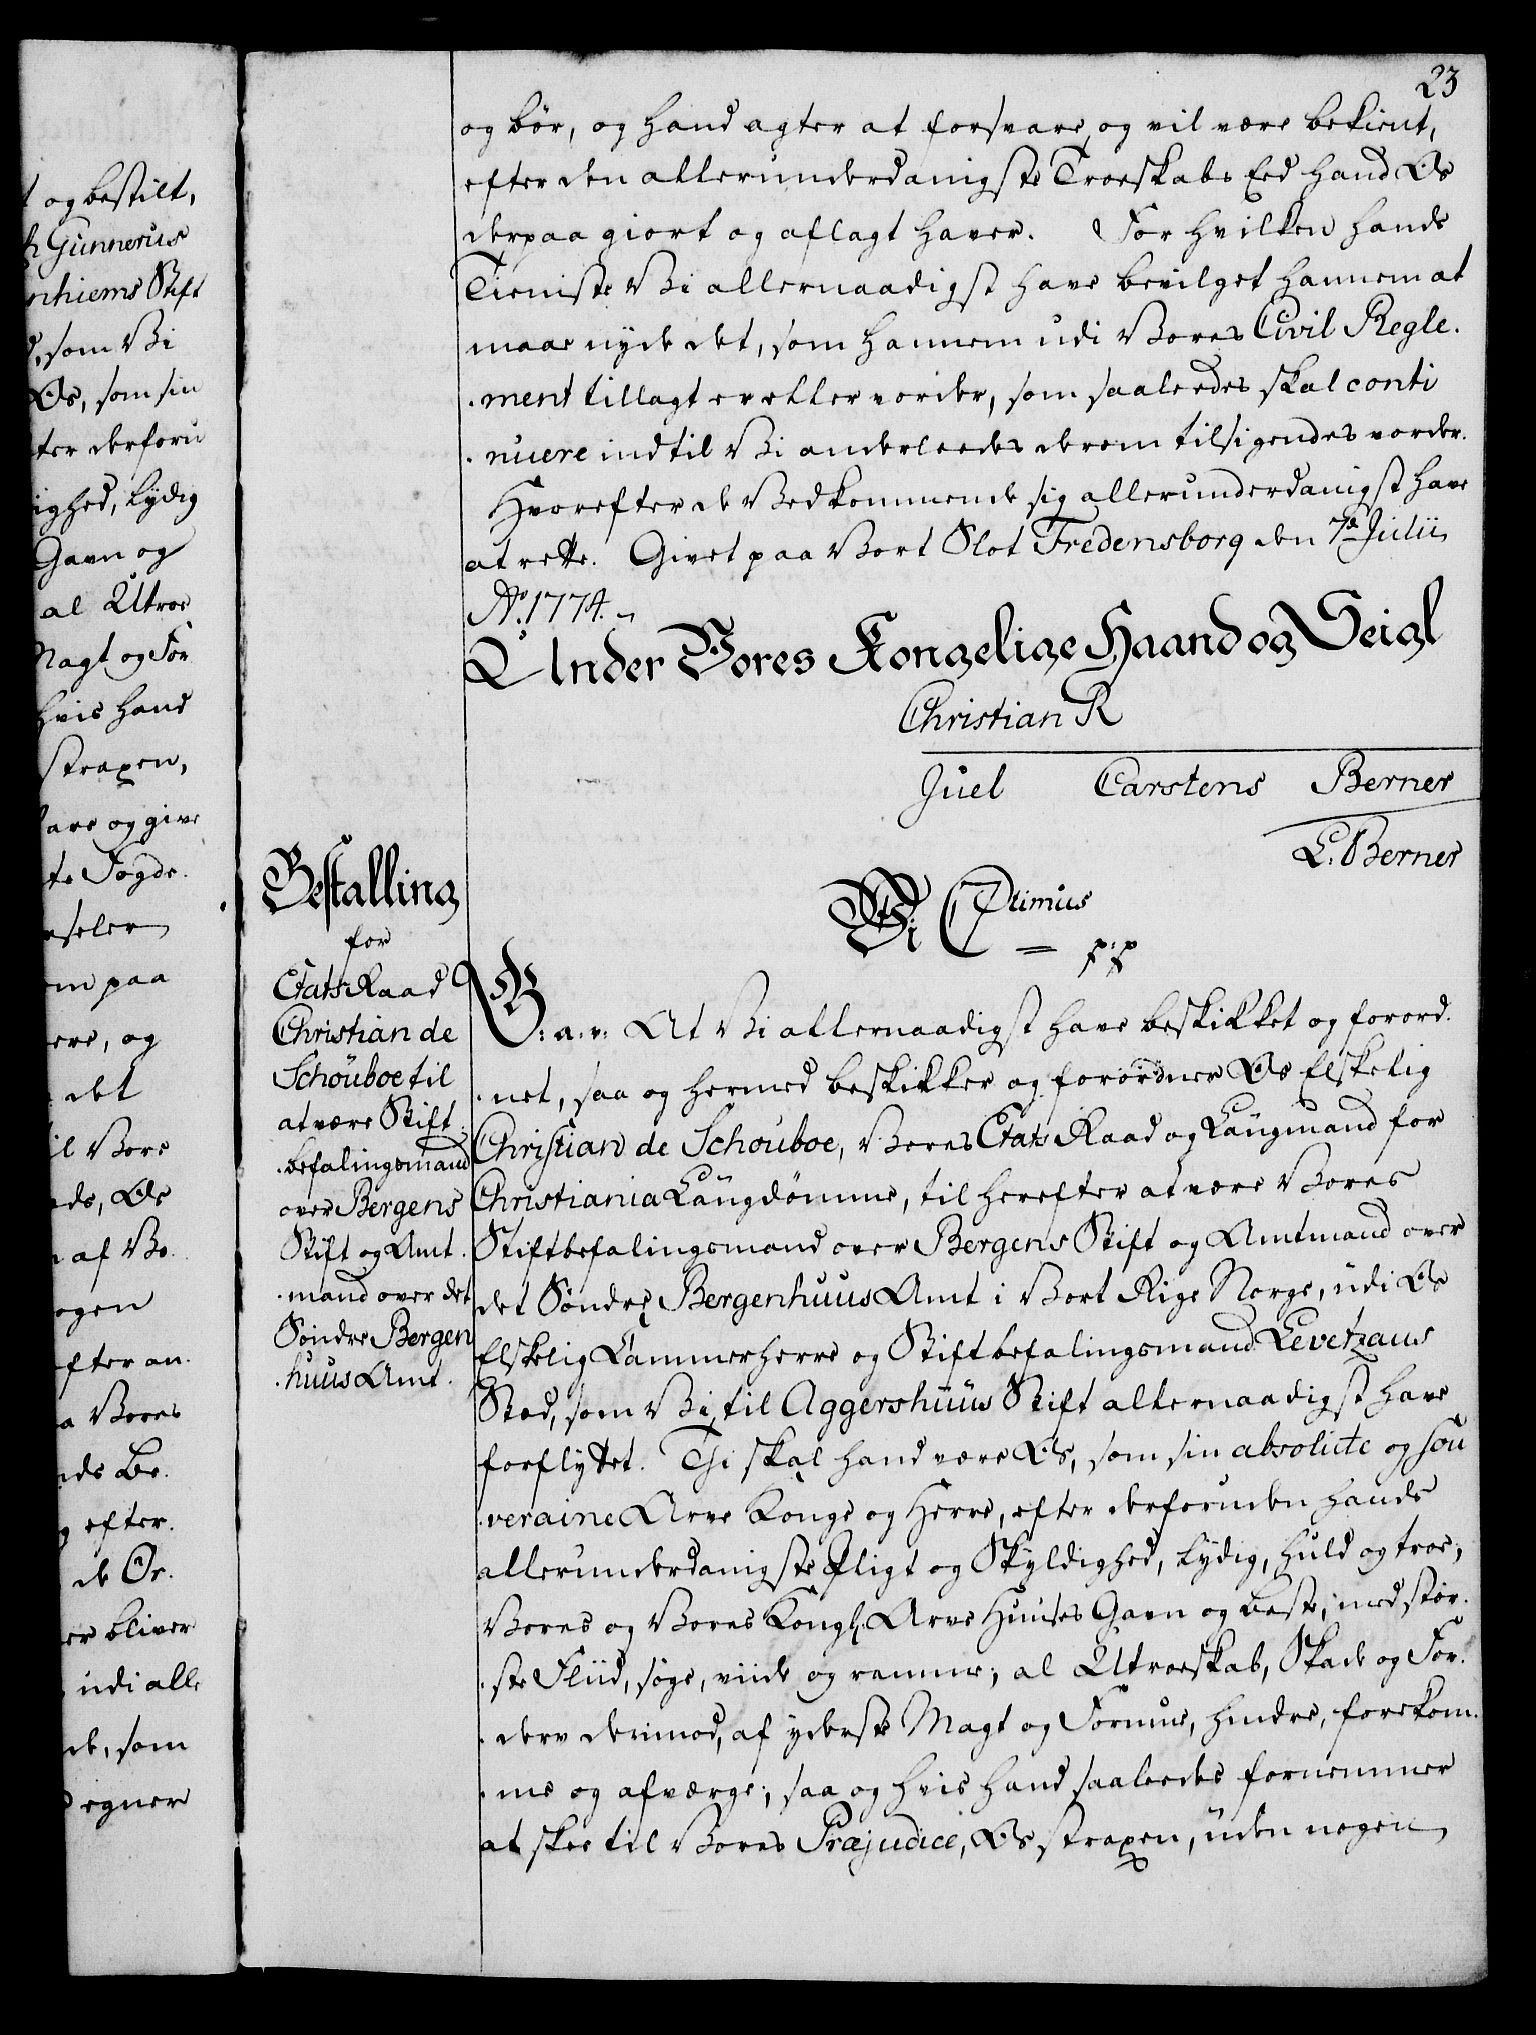 t og bestilt,
h Gunnerus
nhiems Stift
d, som Vi
Os, som sin
ter derforu
ighed, lydig
Gavn og
al Utroe
Magt og For
hvis hand
straxen,
vare og give
te Fogder.
rseler
om paa
ere, og
det
il Vore
nds, Os
n af Vo.
ogen
efter an.
a Vores
nds Be.
g efter.
de Or.
er bliver
udi alle
de, som
egner
23
og bör, og hand agter at forsvare, og vil være bekient,
efter den allerunderdanigste Troeskabs Eed hand Os
derpaa giort og aflagt haver. For hvilken hands
Tieniste Vi allernaadigst have bevilget hannem at
maae nyde det, som hannem udi Vores Civil Regle.
. ment tillagt er eller vorder, som saaleedes skal conti
. nuere indtil Vi anderleedes derom tilsigendes vorder.
Hvorefter de Vedkommende sig allerunderdanigst have
at rette. Givet paa Vort Slot Fredensborg den 7de Julii
Ao. 1774.
Under Vores Kongelige Haand og Seigl
Christian R
Juel Carstens Berner
L. Berner
Bestalling
for
EtatsRaad
Christian de
Schouboe til
at være Stift.
. befalingsmand
over Bergens
Stift og Amt.
. mand over det
Söndre Bergen
. huus Amt.
Vi C 7timus
p.p
G: a. v: At Vi allernaadigst have beskikket og forord.
. net, saa og hermed beskikker og forordner Os Elskelig
Christian de Schouboe, Vores Etats Raad og Laugmand for
Christiania Laugdömme, til herefter at være Vores
Stiftbefalingsmand over Bergens Stift og Amtmand over
det Söndre Bergenhuus Amt i Vort Rige Norge, udi Os
Elskelig Cammerherre og Stiftbefalingsmand Levetzaus
Sted, som Vi, til Aggershuus Stift allernaadigst have
forflyttet. Thi skal hand være Os, som sin absolute og sou
. veraine Arve Konge og Herre, efter derforuden hands
allerunderdanigste Pligt og Skyldighed, lydig, huld og troe,
Vores og Vores Kongl. Arve Huuses Gavn og beste, med stör.
. ste Fliid, söge, viide og ramme; al Utroeskab, Skade og For.
. derv derimod, af yderste Magt og Formue, hindre, forekom.
. me og afværge; saa og hvis hand saaleedes fornemmer
at skee til Vores Præjudice, Os straxen, uden nogen